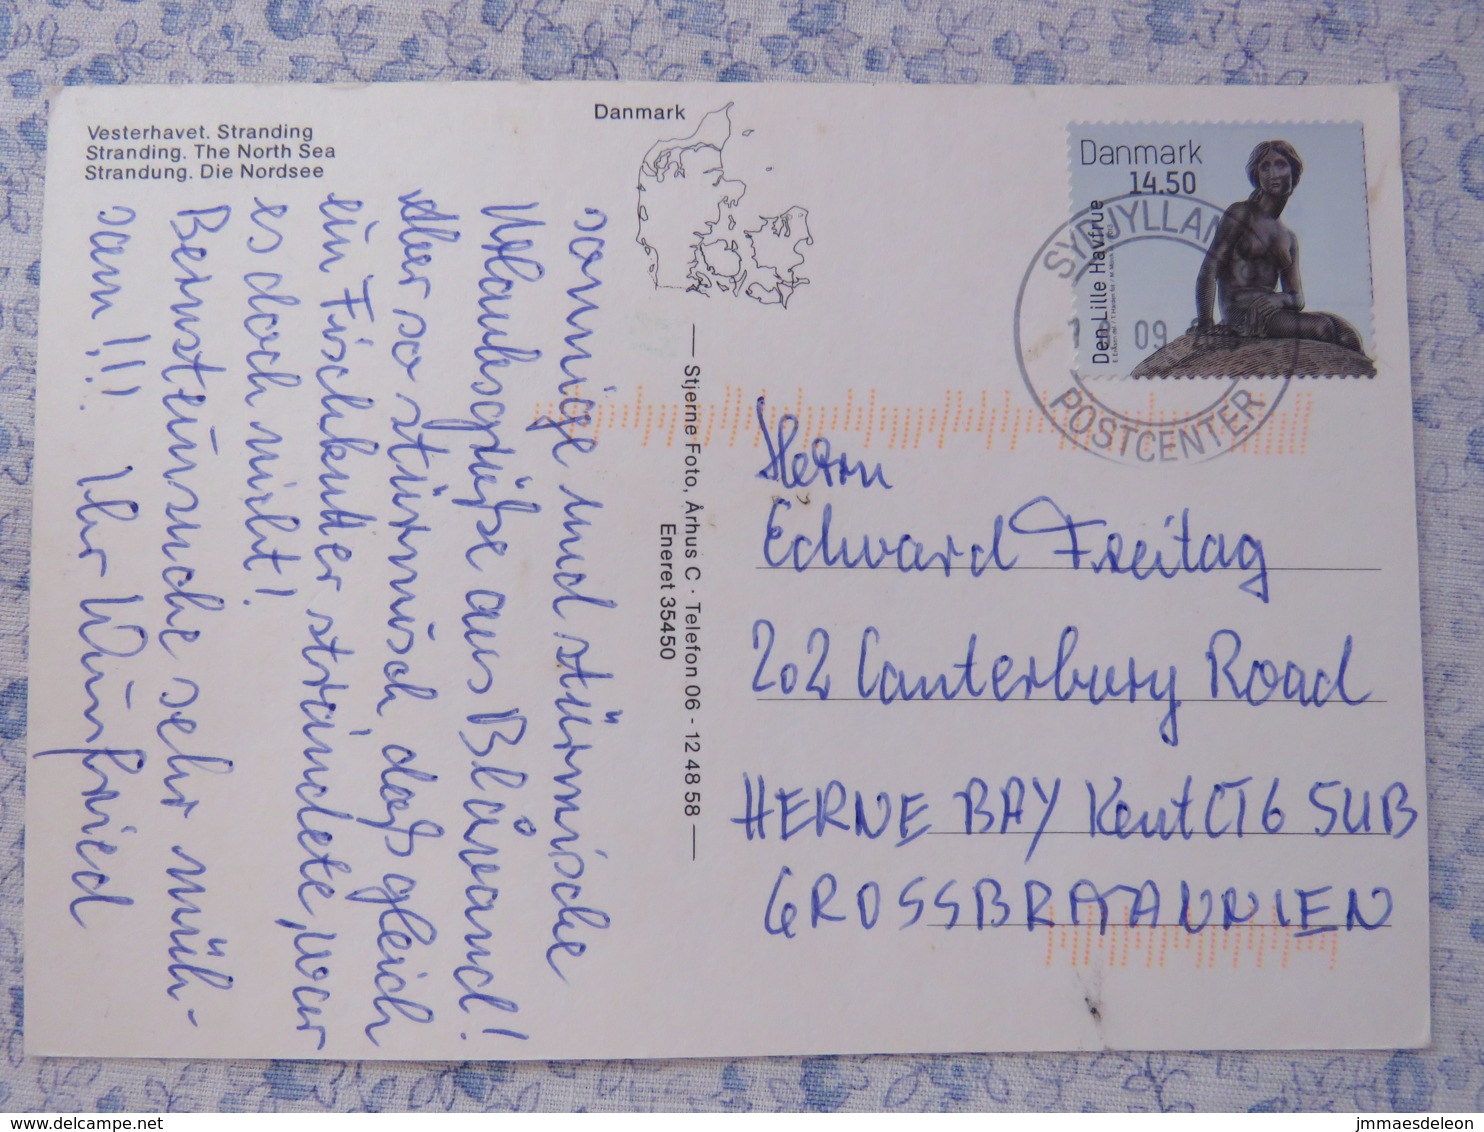 Vesterhavet. Stranding
Stranding. The North Sea
Strandung. Die Nordsee
Danmark
Danmark
14.50
Den Lille Havfrue
SYDJYLLAN
09
POSTCENTER
sonnige und stürmische
Urlaubsgrüße aus Blåvand!
Aber so stürmisch, daß gleich
ein Fischkutter strandete, war
es doch nicht!
Bernsteinsuche sehr müh-
sam!!! Ihr Winfried
Stjerne Foto, Århus C · Telefon 06 - 12 48 58
Eneret 35450
Herrn
Edward Freitag
202 Canterbury Road
HERNE BAY Kent CT6 5UB
GROSSBRATANNIEN
jmmaesdeleon